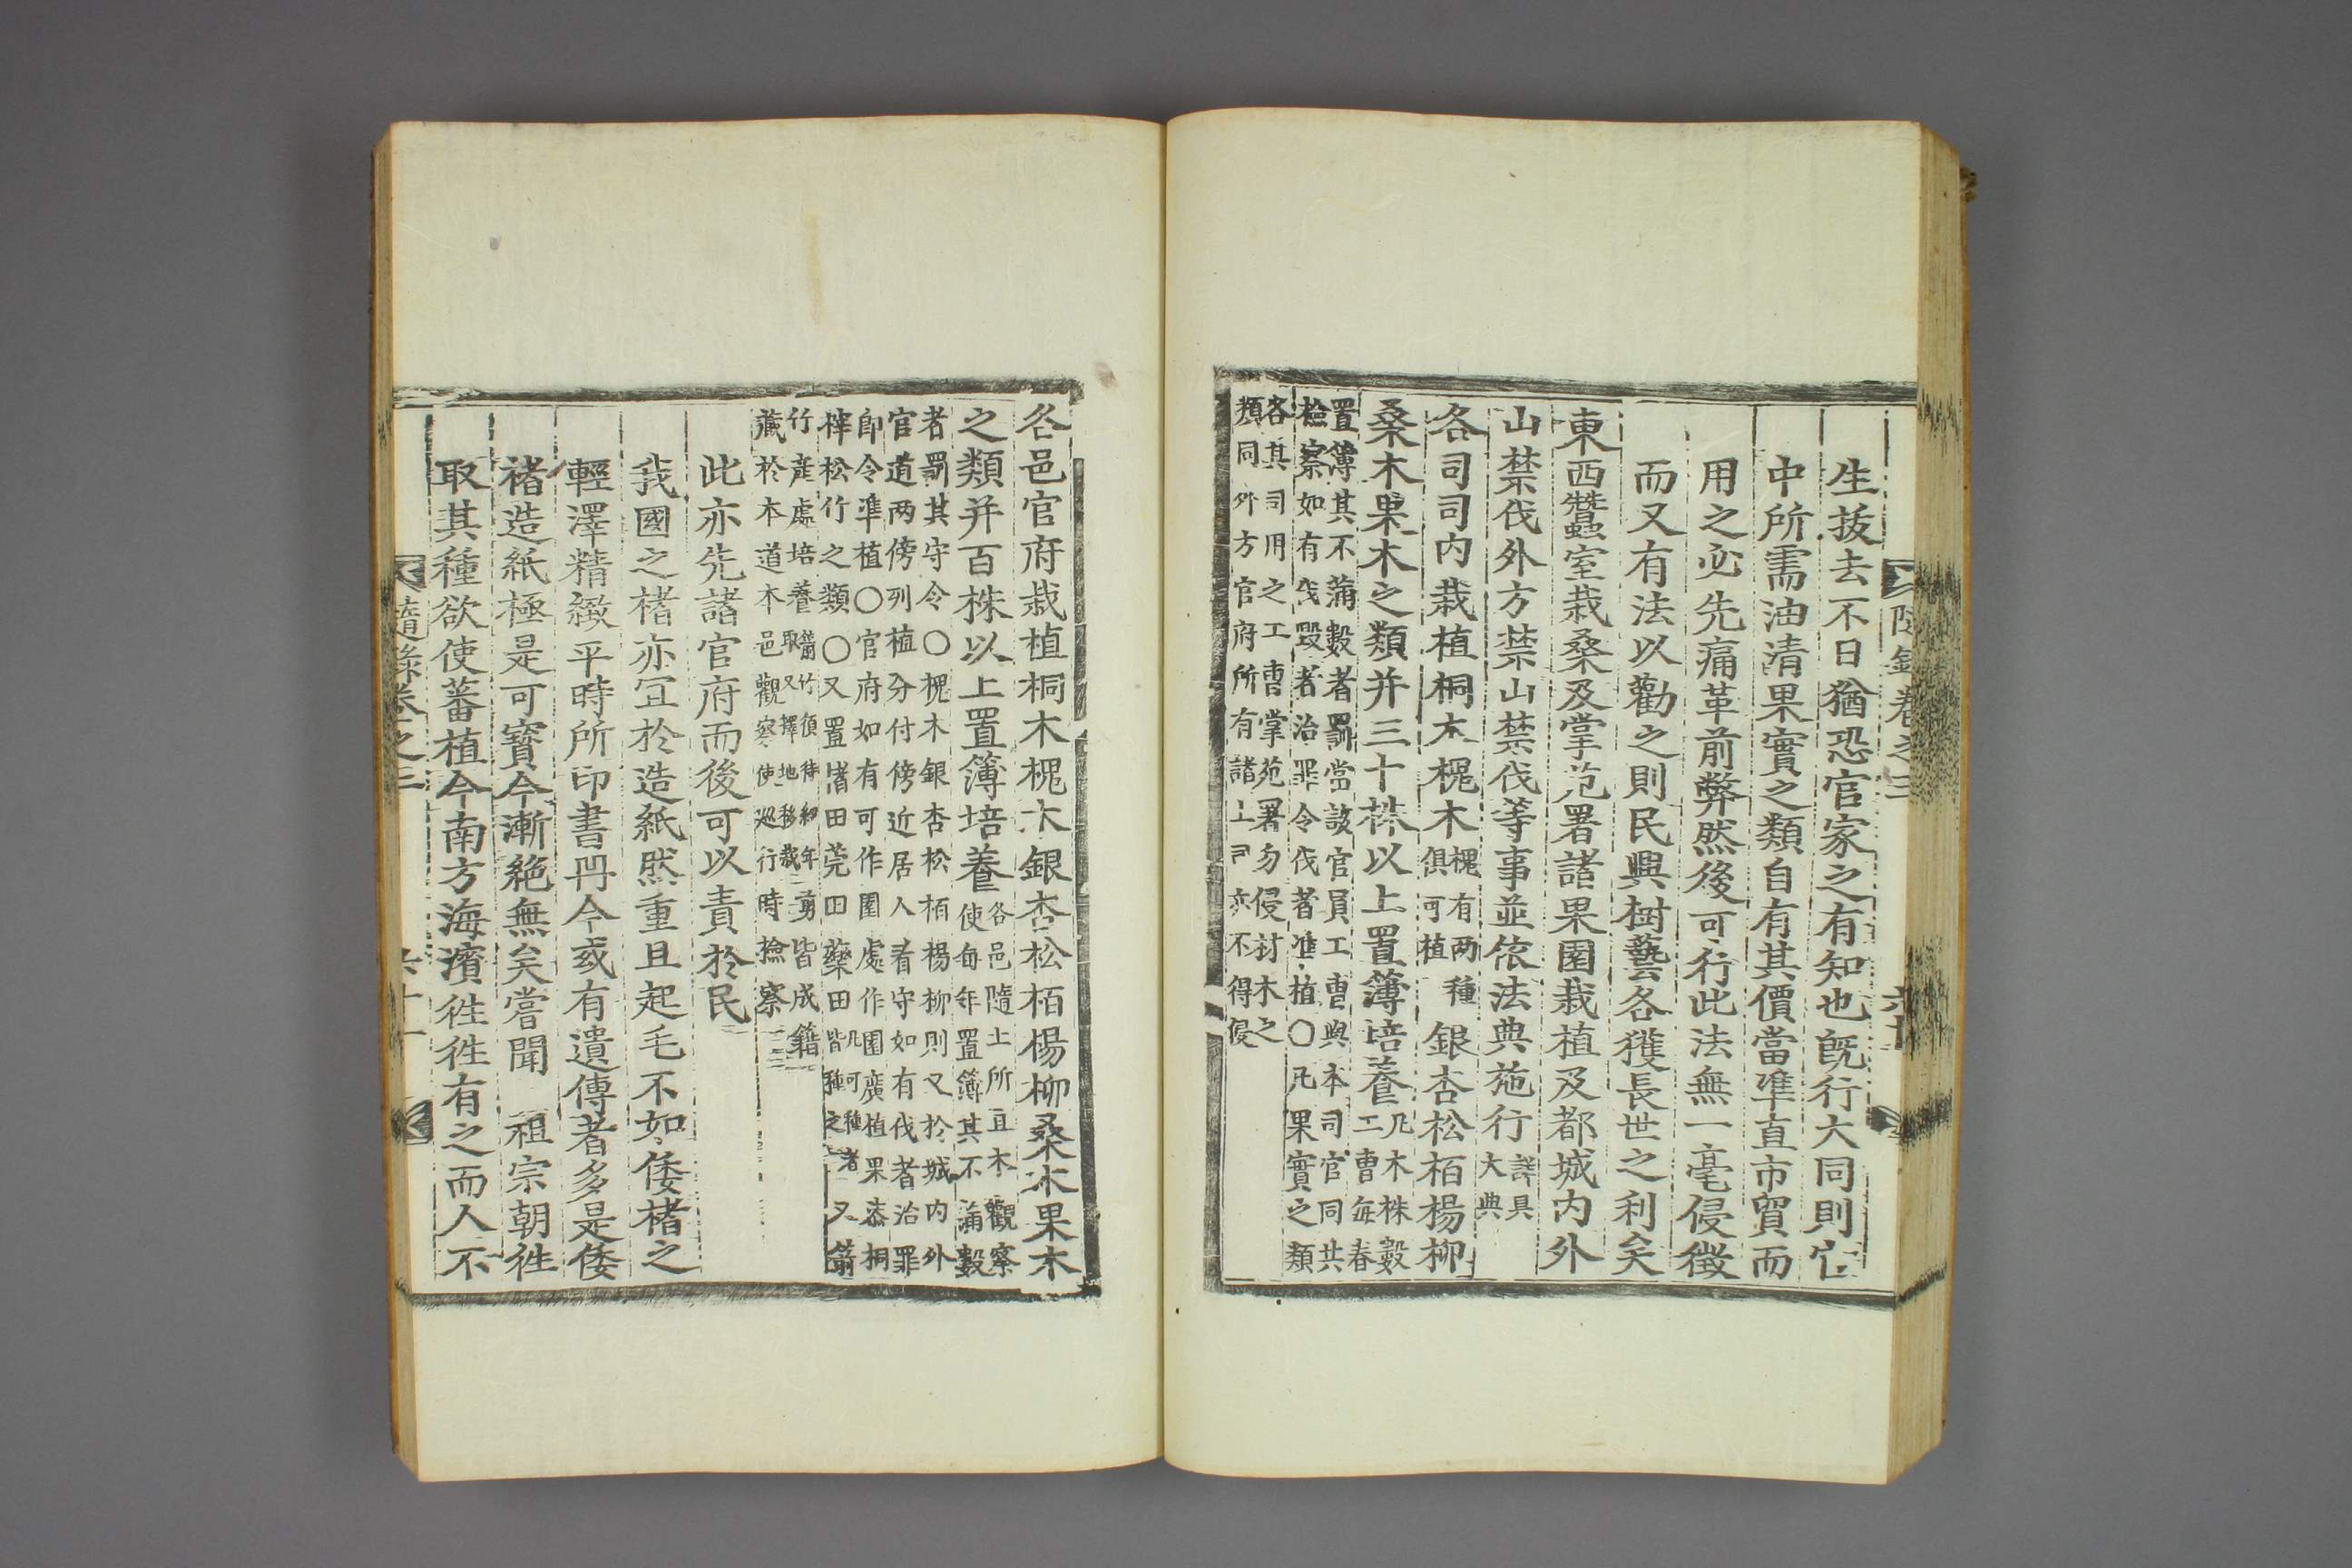 生拔去不日猶恐官家之有知也旣行大同則官
中所需油淸果實之類自有其價當準直市貿而
用之必先痛革前弊然後可行此法無一毫侵徵
而又有法以勸之則民興樹藝各獲長世之利矣
東西蠶室栽桑及掌苑署諸果園栽植及都城內外
山禁伐外方禁山禁伐等事並依法典施行詳具
大典
各司司內栽植桐木槐木槐有兩種
俱可植銀杏松栢楊柳
桑木果木之類并三十株以上置簿培養凡木株數
工曹每春
置簿其不滿數者罰當該官員工曹與本司官同共
檢察如有伐毀者治罪令伐者准植〇凡果實之類
各其司用之工曹掌苑署勿侵材木之
類同外方官府所有諸上司亦不得侵
隨錄卷之三 六十
各邑官府栽植桐木槐木銀杏松栢楊柳桑木果木
之類并百株以上置簿培養各邑隨土所宜木觀察
使每年置簿其不滿數
者罰其守令〇槐木銀杏松栢楊柳則又於城內外
官道兩傍列植分付傍近居人看守如有伐者治罪
卽令準植〇官府如有可作園處作園廣植果漆桐
梓松竹之類〇又置楮田莞田藥田凡可種者
皆種之又箭
竹産處培養箭竹須待納年剪
取又擇地移栽皆成籍
藏於本道本邑觀察使巡行時撿察
此亦先諸官府而後可以責於民
我國之楮亦宜於造紙然重且起毛不如倭楮之
輕澤精緻平時所印書冊今或有遺傳者多是倭
楮造紙極是可寶今漸絶無矣嘗聞 祖宗朝徃
取其種欲使蕃植今南方海濱徃徃有之而人不
隨錄卷之三 六十一